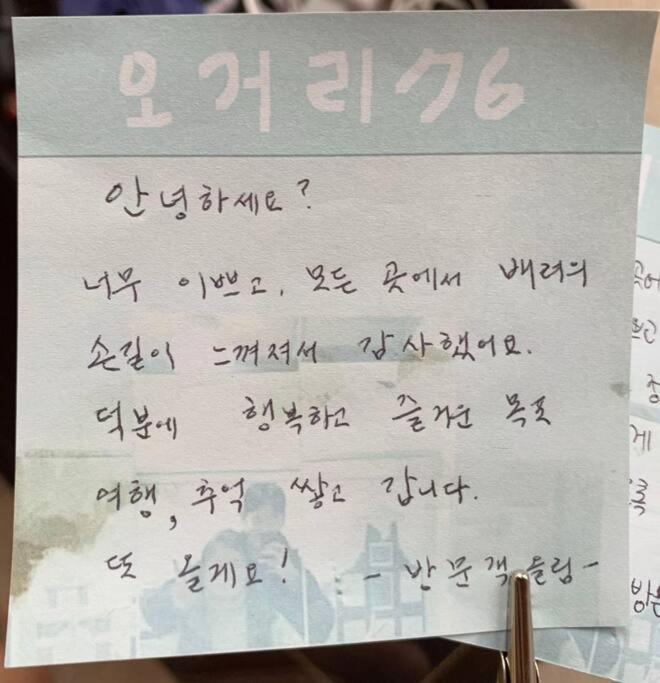 오거리76
안녕하세요?
너무 이쁘고, 모든 곳에서 배려의
손길이 느껴져서 감사했어요.
덕분에 행복하고 즐거운 목포
여행, 추억 쌓고 갑니다.
또 올게요! - 반문객 들림 -